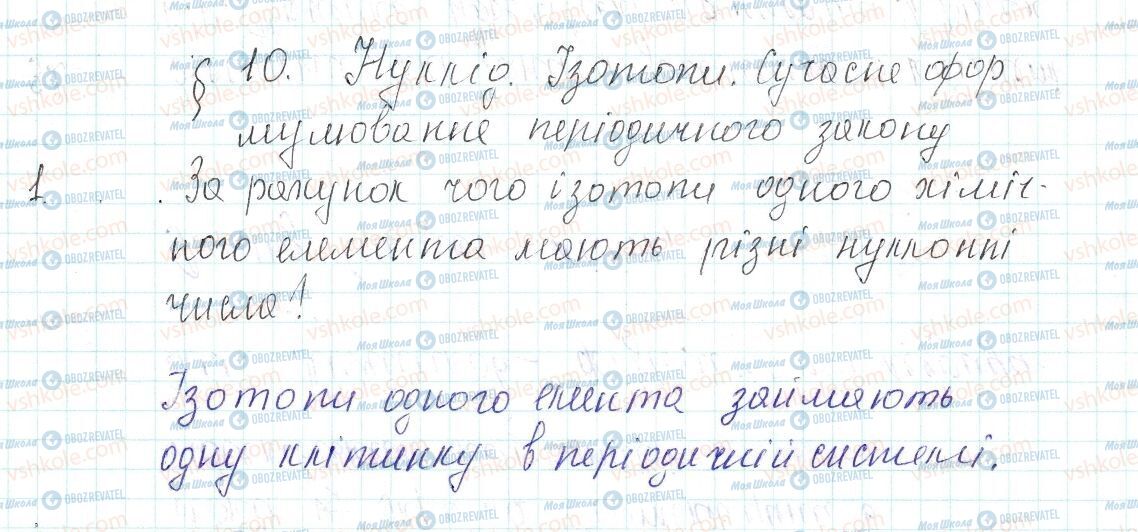 § 10. Нуклід. Ізотопи. Сучасне фор
мулювання періодичного закону
1. За рахунок чого ізотопи одного хіміч-
ного елемента мають різні нуклонні
числа!
Ізотопи одного елемента займають
одну клітинку в періодичній системі.